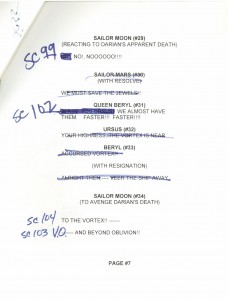 SC 99
SAILOR MOON (#29)
(REACTING TO DARIAN'S APPARENT DEATH)
NO!. NOOOOO!!!!
SAILOR MARS (#30)
(WITH RESOLVE)
WE MUST SAVE THE JEWELS!!
SC 102
QUEEN BERYL (#31)
WE ALMOST HAVE
THEM FASTER!! FASTER!!!
URSUS (#32)
YOUR HIGHNESS. THE VORTEX IS NEAR
BERYL (#33)
ACCURSED VORTEX!
(WITH RESIGNATION)
THEN VEER THE SHIP AWAY.
SAILOR MOON (#34)
(TO AVENGE DARIAN'S DEATH)
SC 104 TO THE VORTEX!! -----
SC 103 V.O. ---- AND BEYOND OBLIVION!!
PAGE #7